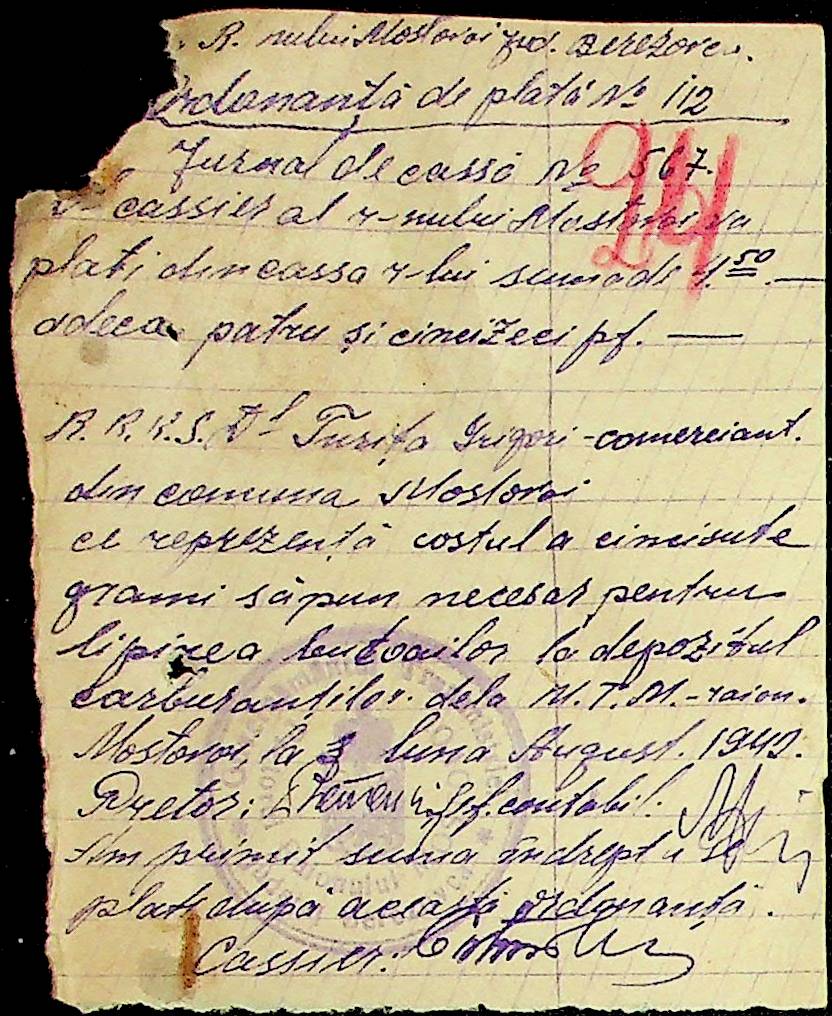 R. nului Mostovoi jud. Berezovca.
Ordonanță de plată № 112
Jurnal de cassă № 567.
24
Dl cassier al r-nului Mostovoi va
plati din cassa r-lui suma de 4.50 —
adeca patru și cincizeci pf. —
R. R. K. S. Dl Turița Grigori - comerciant.
din comuna Mostovoi
ce reprezentă costul a cincisute
grami săpun necesar pentru
lipirea butoailor la depozitul
carburanților dela M. T. M. - raion.
Mostovoi, la 3 luna August. 1942.
Pretor: Șef. contabil.
Am primit suma îndrept a se
plati după această ordonanță.
Cassier: